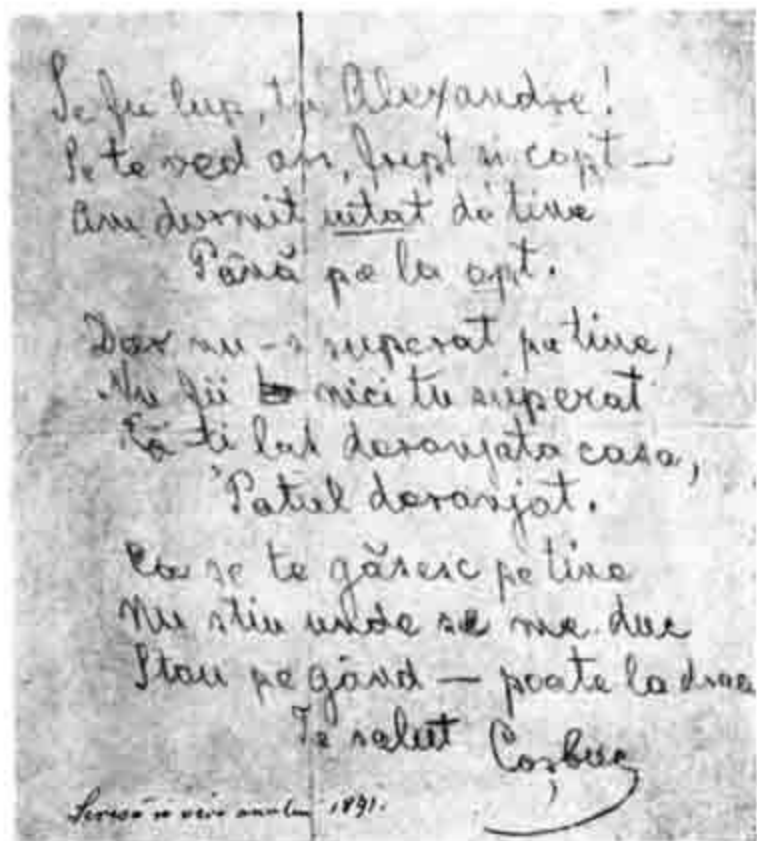 Se fiu lup, tu Alexandre!
Se te ved ars, fript si copt —
Am dormit uitat de tine
Până pe la opt.
Dar nu-s superat pe tine,
Nu fii nici tu superat
Că-ti las deranjata casa,
Patul deranjat.
Ca se te găsesc pe tine
Nu stiu unde se me duc
Stau pe gând — poate la drac
Te salut Coşbuc
1891.